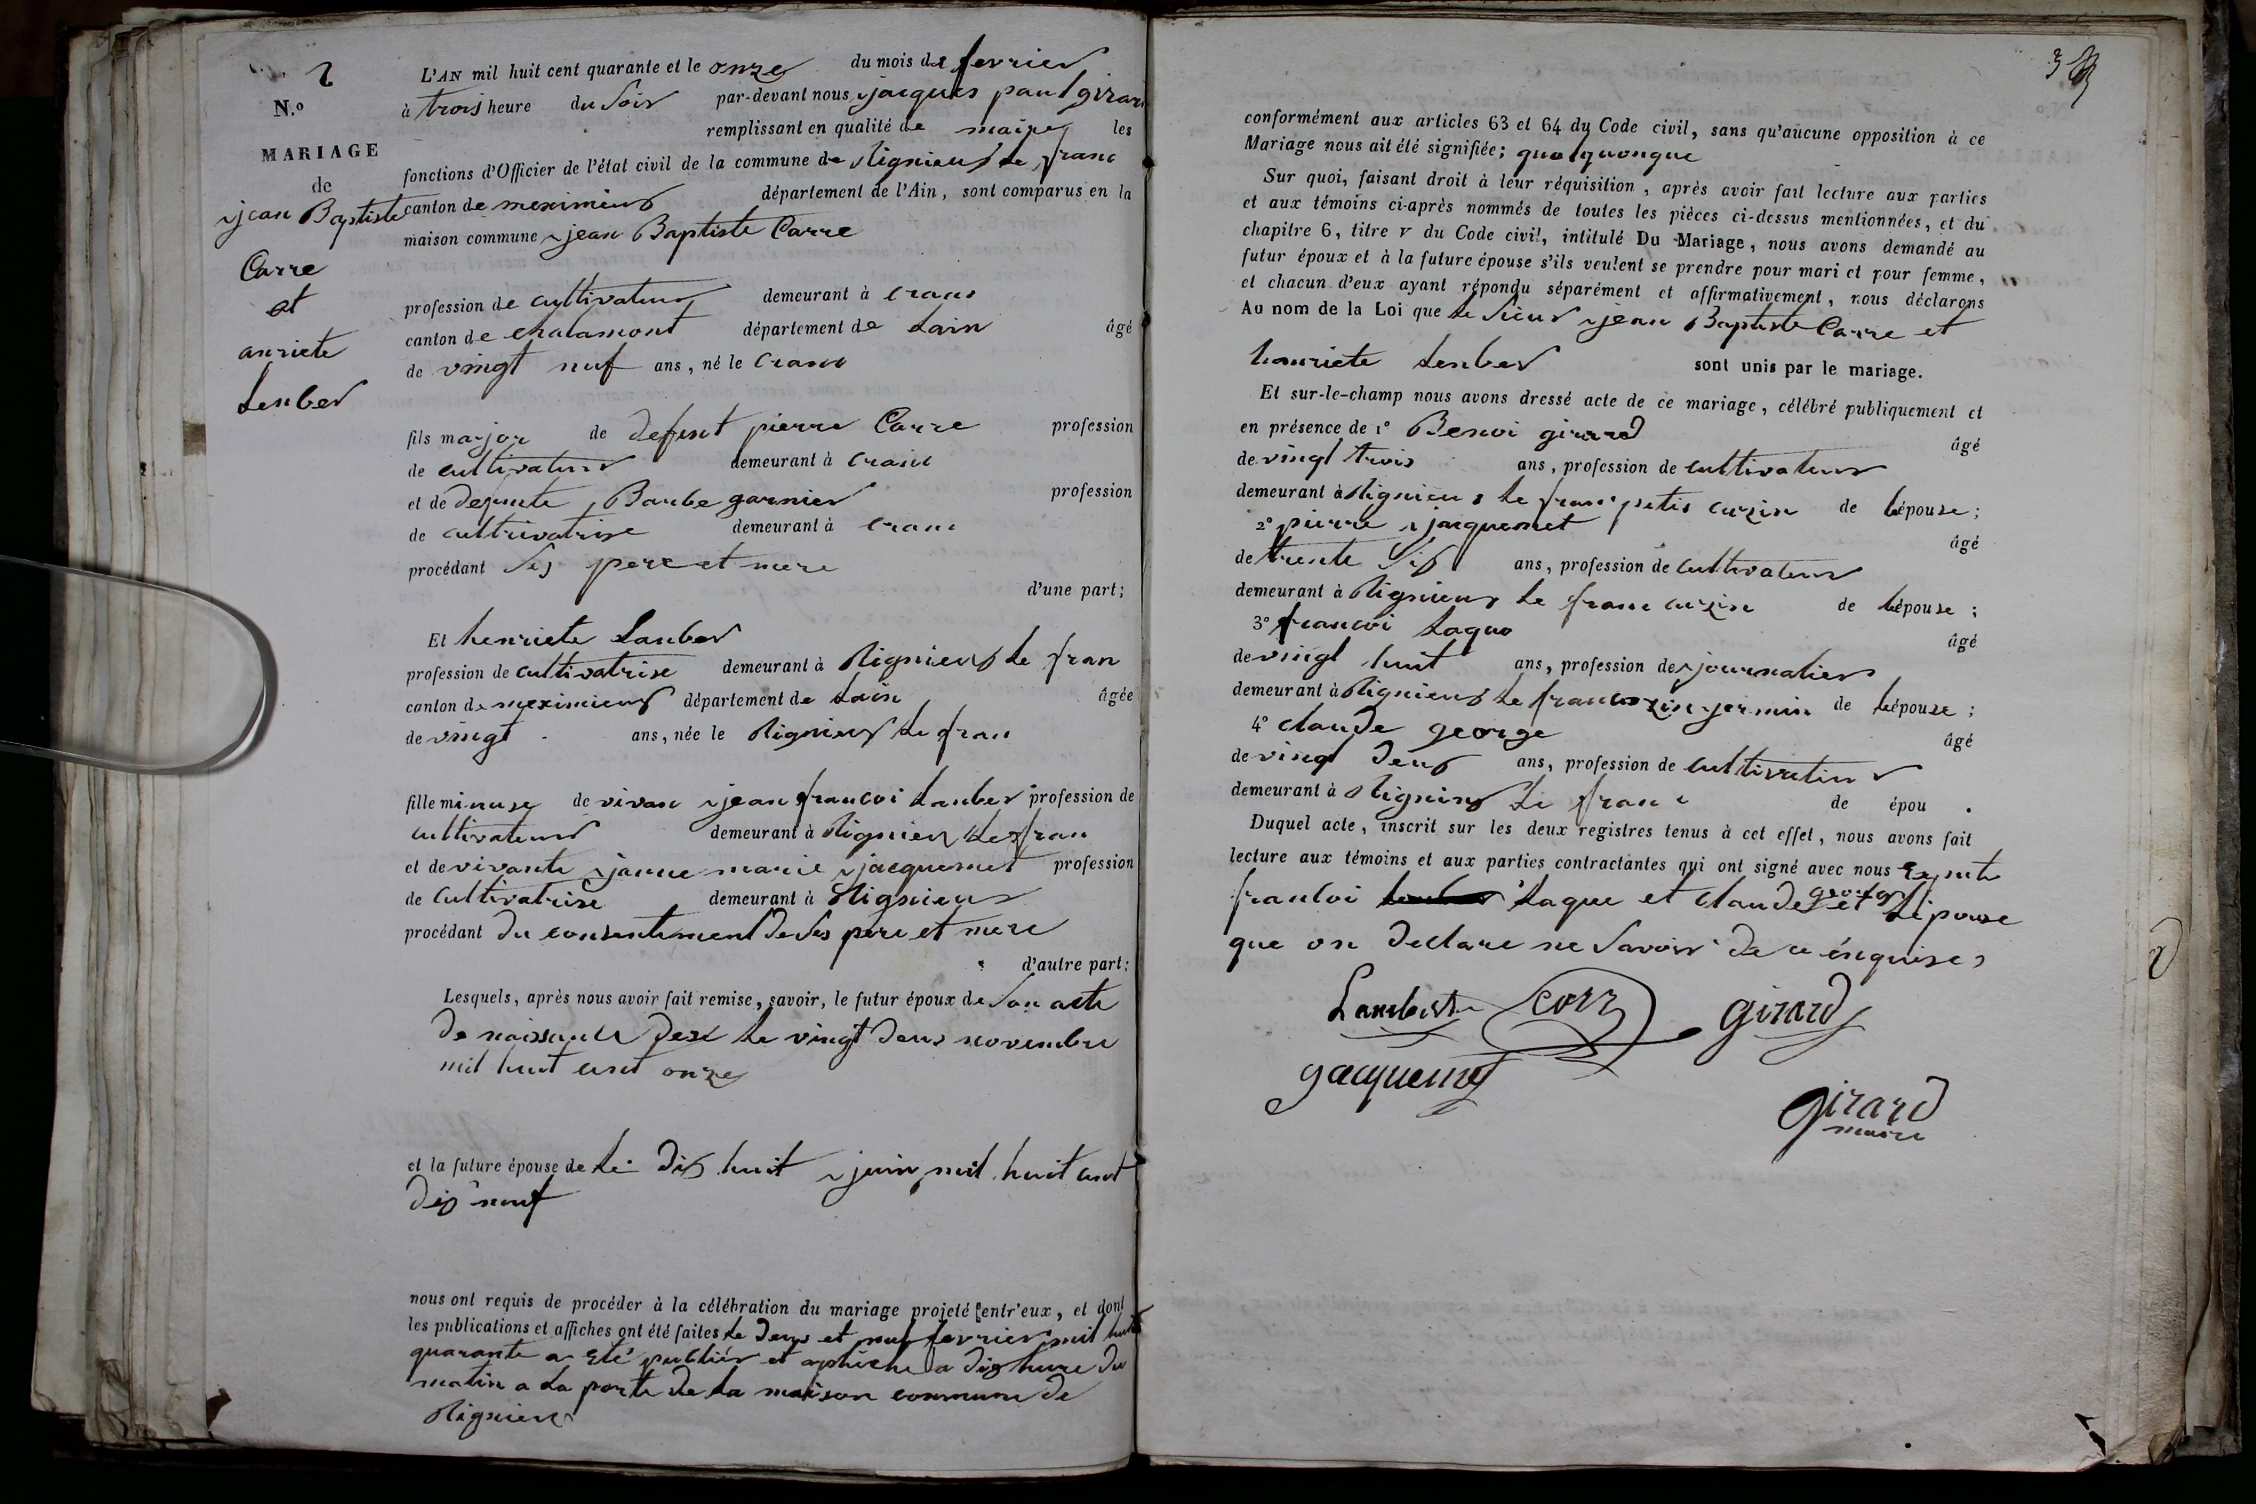 2
N.o
MARIAGE
de
jean Baptiste
Carre
et
anriete
Lenber
L'AN mil huit cent quarante et le onze du mois de fevrier
à trois heure du soir par-devant nous jacques paul girar
remplissant en qualité de maire les
fonctions d'Officier de l'état civil de la commune de Rignieux le franc
canton de meximieux département de l'Ain, sont comparus en la
maison commune jean Baptiste Carre
profession de cultivateur demeurant à crans
canton de chalamont département de Lain âgé
de vingt nuf ans, né le crans
fils major de defunt pierre Carre profession
de cultivateur demeurant à crans
et de defunte Barbe garnier profession
de cultivatrise demeurant à crans
procédant ses pere et mere
d'une part;
Et henriete Lanber
profession de cultivatrise demeurant à Rignieux le fran
canton de meximieux département de Lain âgée
de vingt ans, née le Rignieux le fran
fille minuse de vivan jean francoi Lanber profession de
cultivateur demeurant à Rignieux le fran
et de vivante janne marie jacquemet profession
de Cultivatrise demeurant à Rignieux
procédant du consentement de ses pere et mere
d'autre part:
Lesquels, après nous avoir fait remise, savoir, le futur époux de son acte
de naissance le vingt deux novembre
mil huit cent onze
et la future épouse de le dix huit juin mil huit cent
dix neuf
nous ont requis de procéder à la célébration du mariage projeté entr'eux, et dont
les publications et affiches ont été faites le deux et neuf fevrier mil huit
quarante a eté publiér et aphiche a dix heure du
matin a la porte de la maison commune de
Rignieux
3
conformément aux articles 63 et 64 du Code civil, sans qu'aucune opposition à ce
Mariage nous ait été signifiée; quelquonque
Sur quoi, faisant droit à leur réquisition, après avoir fait lecture aux parties
et aux témoins ci-après nommés de toutes les pièces ci-dessus mentionnées, et du
chapitre 6, titre v du Code civil, intitulé Du Mariage, nous avons demandé au
futur époux et à la future épouse s'ils veulent se prendre pour mari et pour femme,
et chacun d'eux ayant répondu séparément et affirmativement, nous déclarons
Au nom de la Loi que le sieur jean Baptiste Carre et
hanriete Lenber sont unis par le mariage.
Et sur-le-champ nous avons dressé acte de ce mariage, célébré publiquement et
en présence de 1° Benoi girard âgé
de vingt trois ans, profession de cultivateur
demeurant à Rignieux le franc petis curzin de lépouse;
2° pierre jacquemet âgé
de trente six ans, profession de cultivateur
demeurant à Rignieux le franc curzin de lépouse;
3° francoi Laque âgé
de vingt huit ans, profession de journalier
demeurant à Rignieux le franc germin de lépouse;
4° claude george âgé
de vingt deux ans, profession de cultivateur
demeurant à Rignieux le franc de épou .
Duquel acte, inscrit sur les deux registres tenus à cet effet, nous avons fait
lecture aux témoins et aux parties contractantes qui ont signé avec nous Exsepte
francoi Laque et claude george et Lépouse
que on declare ne savoir de ce énquises
Lambert Carr Girard
Jacquemet
Girard
maire